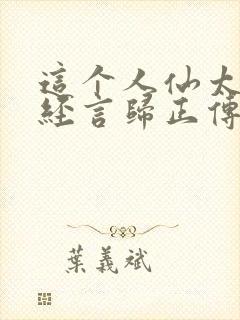 這个人仙太
經言歸正傳
葉義斌